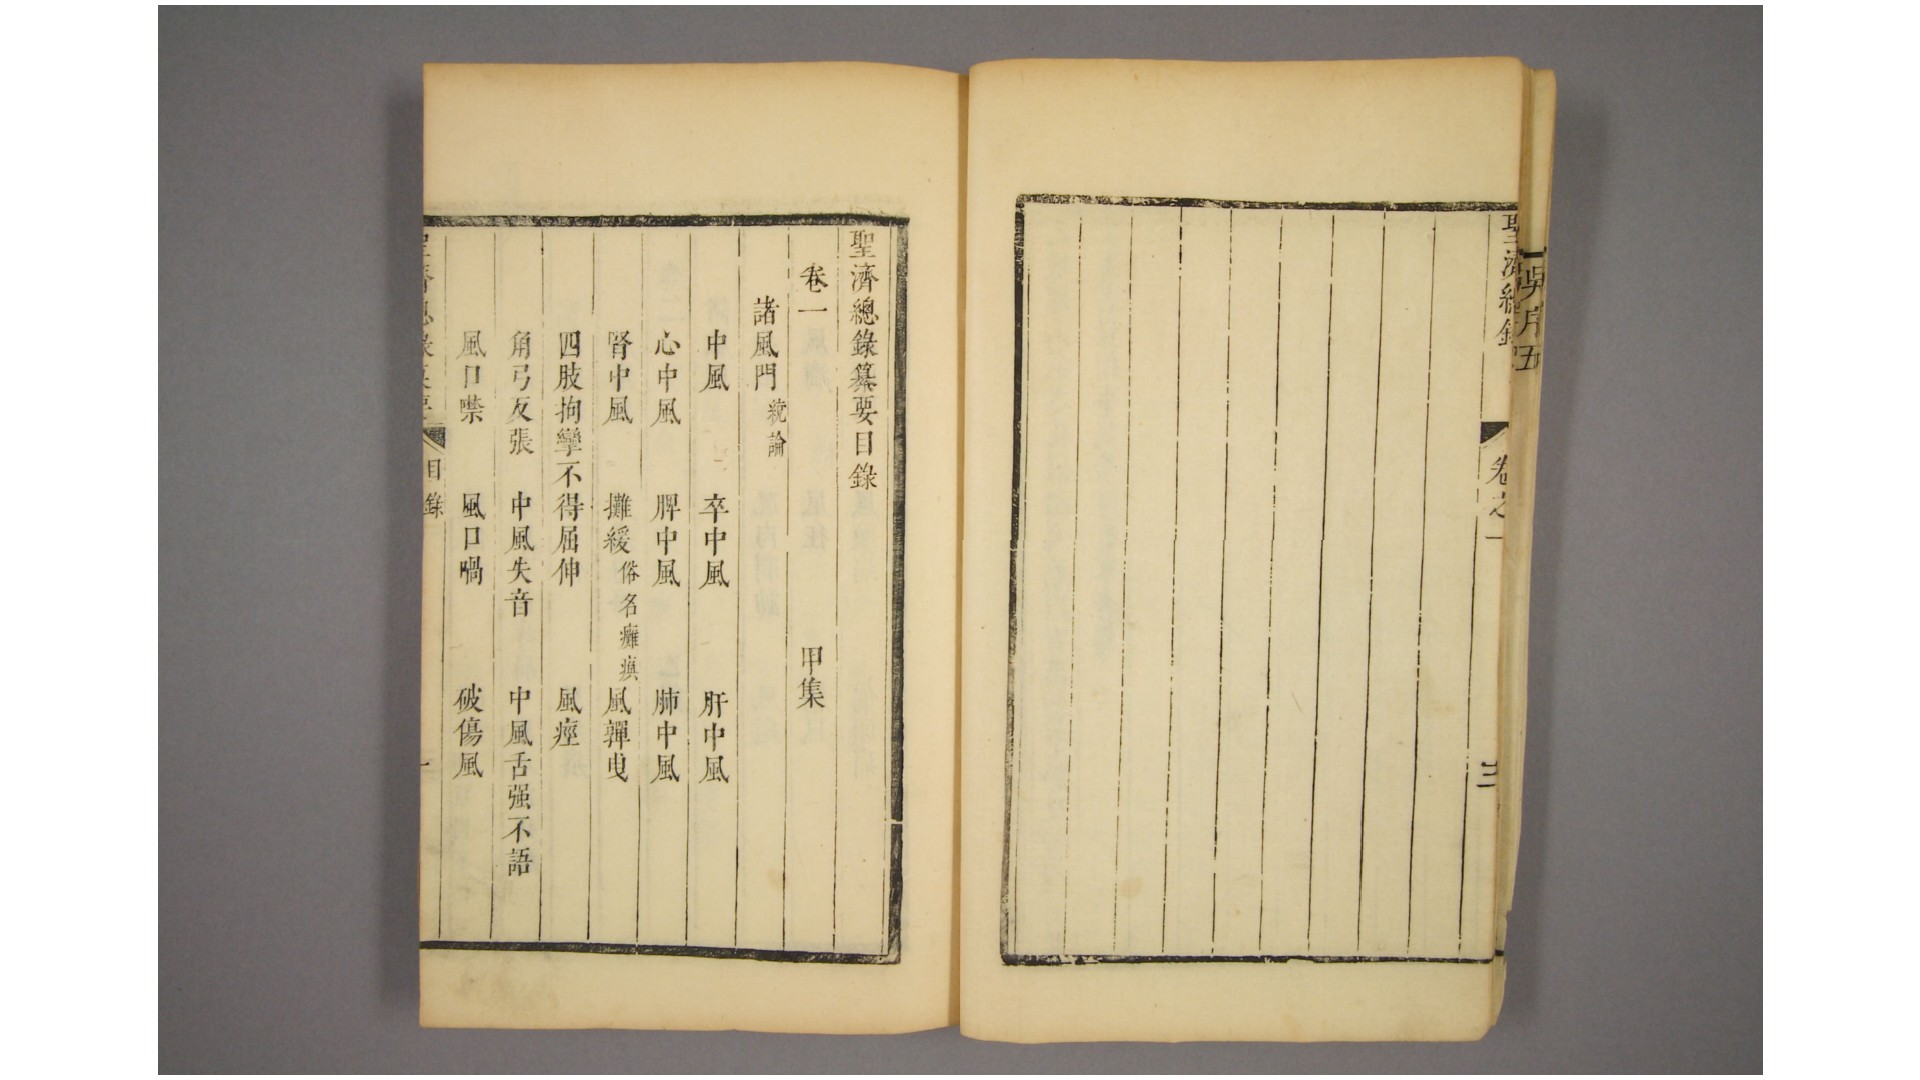 吳序 五
聖濟總錄 卷之一 三
聖濟總錄纂要目錄
卷一 甲集
諸風門 統論
中風 卒中風 肝中風
心中風 脾中風 肺中風
腎中風 攤緩 俗名癱瘓 風軃曳
四肢拘攣不得屈伸 風痙
角弓反張 中風失音 中風舌强不語
風口噤 風口喎 破傷風
聖濟總錄纂要 目錄 一